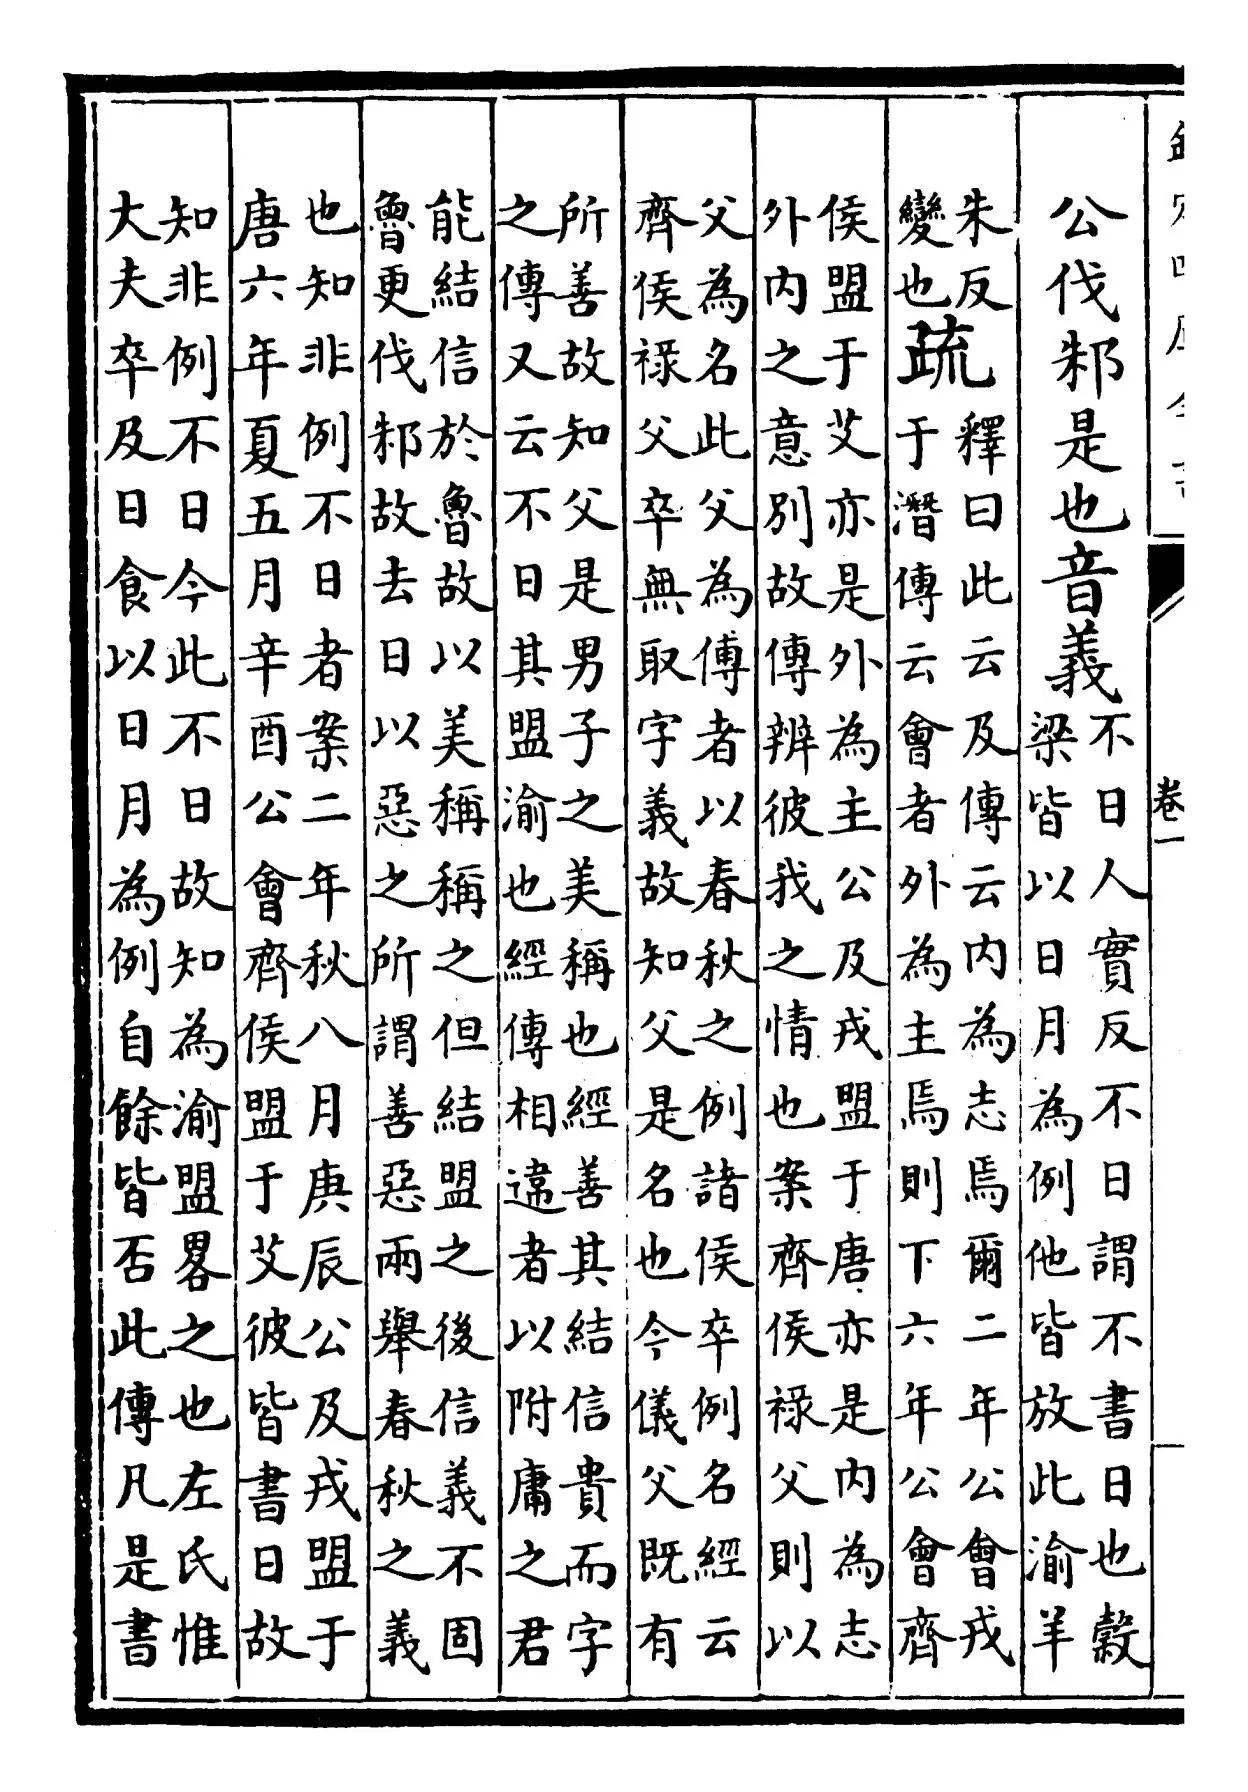 欽定四庫全書
卷一
公伐邾是也音義
不日人實反不日謂不書日也糓
梁皆以日月為例他皆放此渝羊
朱反
變也疏
釋曰此云及傳云内為志焉爾二年公會戎
于潛傳云會者外為主焉則下六年公會齊
侯盟于艾亦是外為主公及戎盟于唐亦是内為志
外内之意別故傳辨彼我之情也案齊侯禄父則以
父為名此父為傅者以春秋之例諸侯卒例名經云
齊侯禄父卒無取字義故知父是名也今儀父既有
所善故知父是男子之美稱也經善其結信貴而字
之傳又云不日其盟渝也經傳相違者以附庸之君
能結信於魯故以美稱稱之但結盟之後信義不固
魯更伐邾故去日以惡之所謂善惡兩舉春秋之義
也知非例不日者案二年秋八月庚辰公及戎盟于
唐六年夏五月辛酉公會齊侯盟于艾彼皆書日故
知非例不日今此不日故知為渝盟畧之也左氏惟
大夫卒及日食以日月為例自餘皆否此傳凡是書